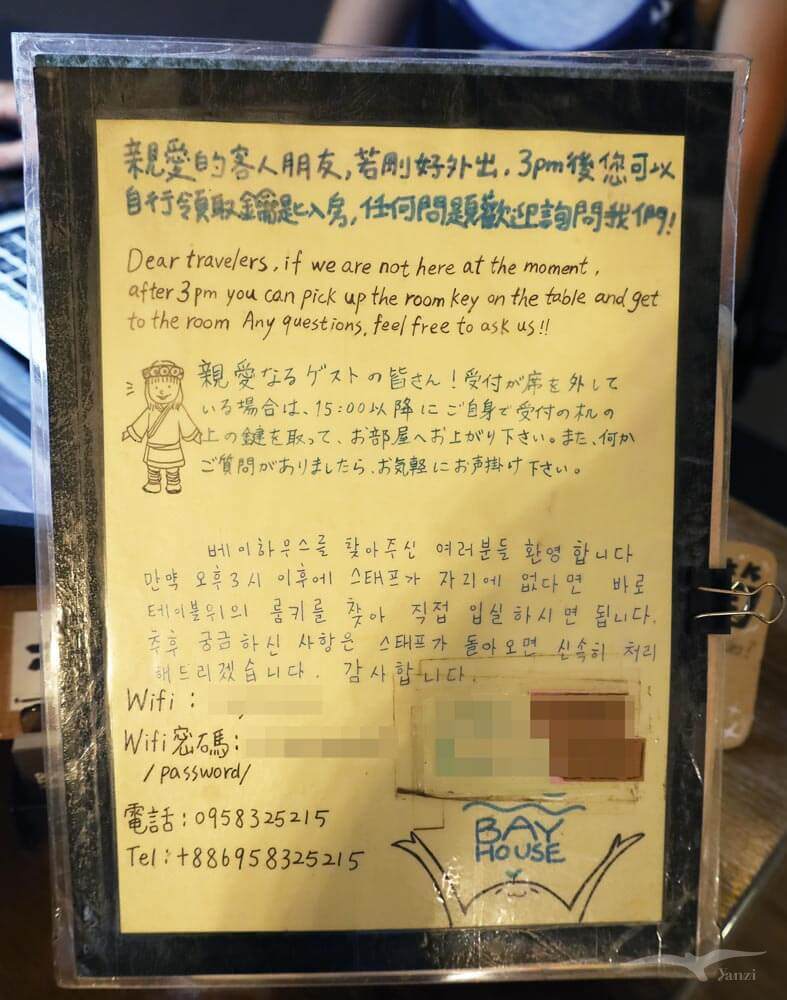 親愛的客人朋友,若剛好外出,3pm後您可以
自行領取鑰匙入房,任何問題歡迎詢問我們!
Dear travelers, if we are not here at the moment,
after 3pm you can pick up the room key on the table and get
to the room Any questions, feel free to ask us!!
親愛なるゲストの皆さん!受付が席を外して
いる場合は、15:00以降にご自身で受付の机の
上の鍵を取って、お部屋へお上がり下さい。また、何か
ご質問がありましたら、お気軽にお声掛け下さい。
베이하우스를 찾아주신 여러분들 환영합니다
만약 오후3시 이후에 스태프가 자리에 없다면 바로
테이블위의 룸키를 찾아 직접 입실하시면 됩니다.
추후 궁금하신 사항은 스태프가 돌아오면 신속히 처리
해드리겠습니다. 감사합니다.
Wifi :
Wifi密碼:
/password/
電話:0958325215
Tel:+886958325215
BAY
HOUSE
Yanzi